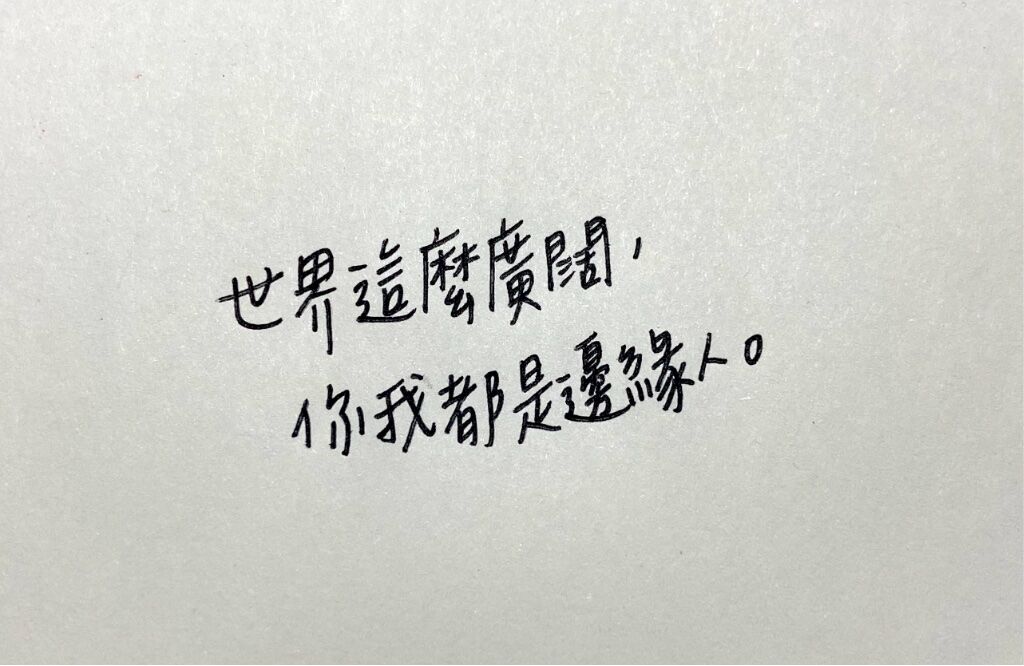 世界這麼廣闊,
你我都是邊緣人。